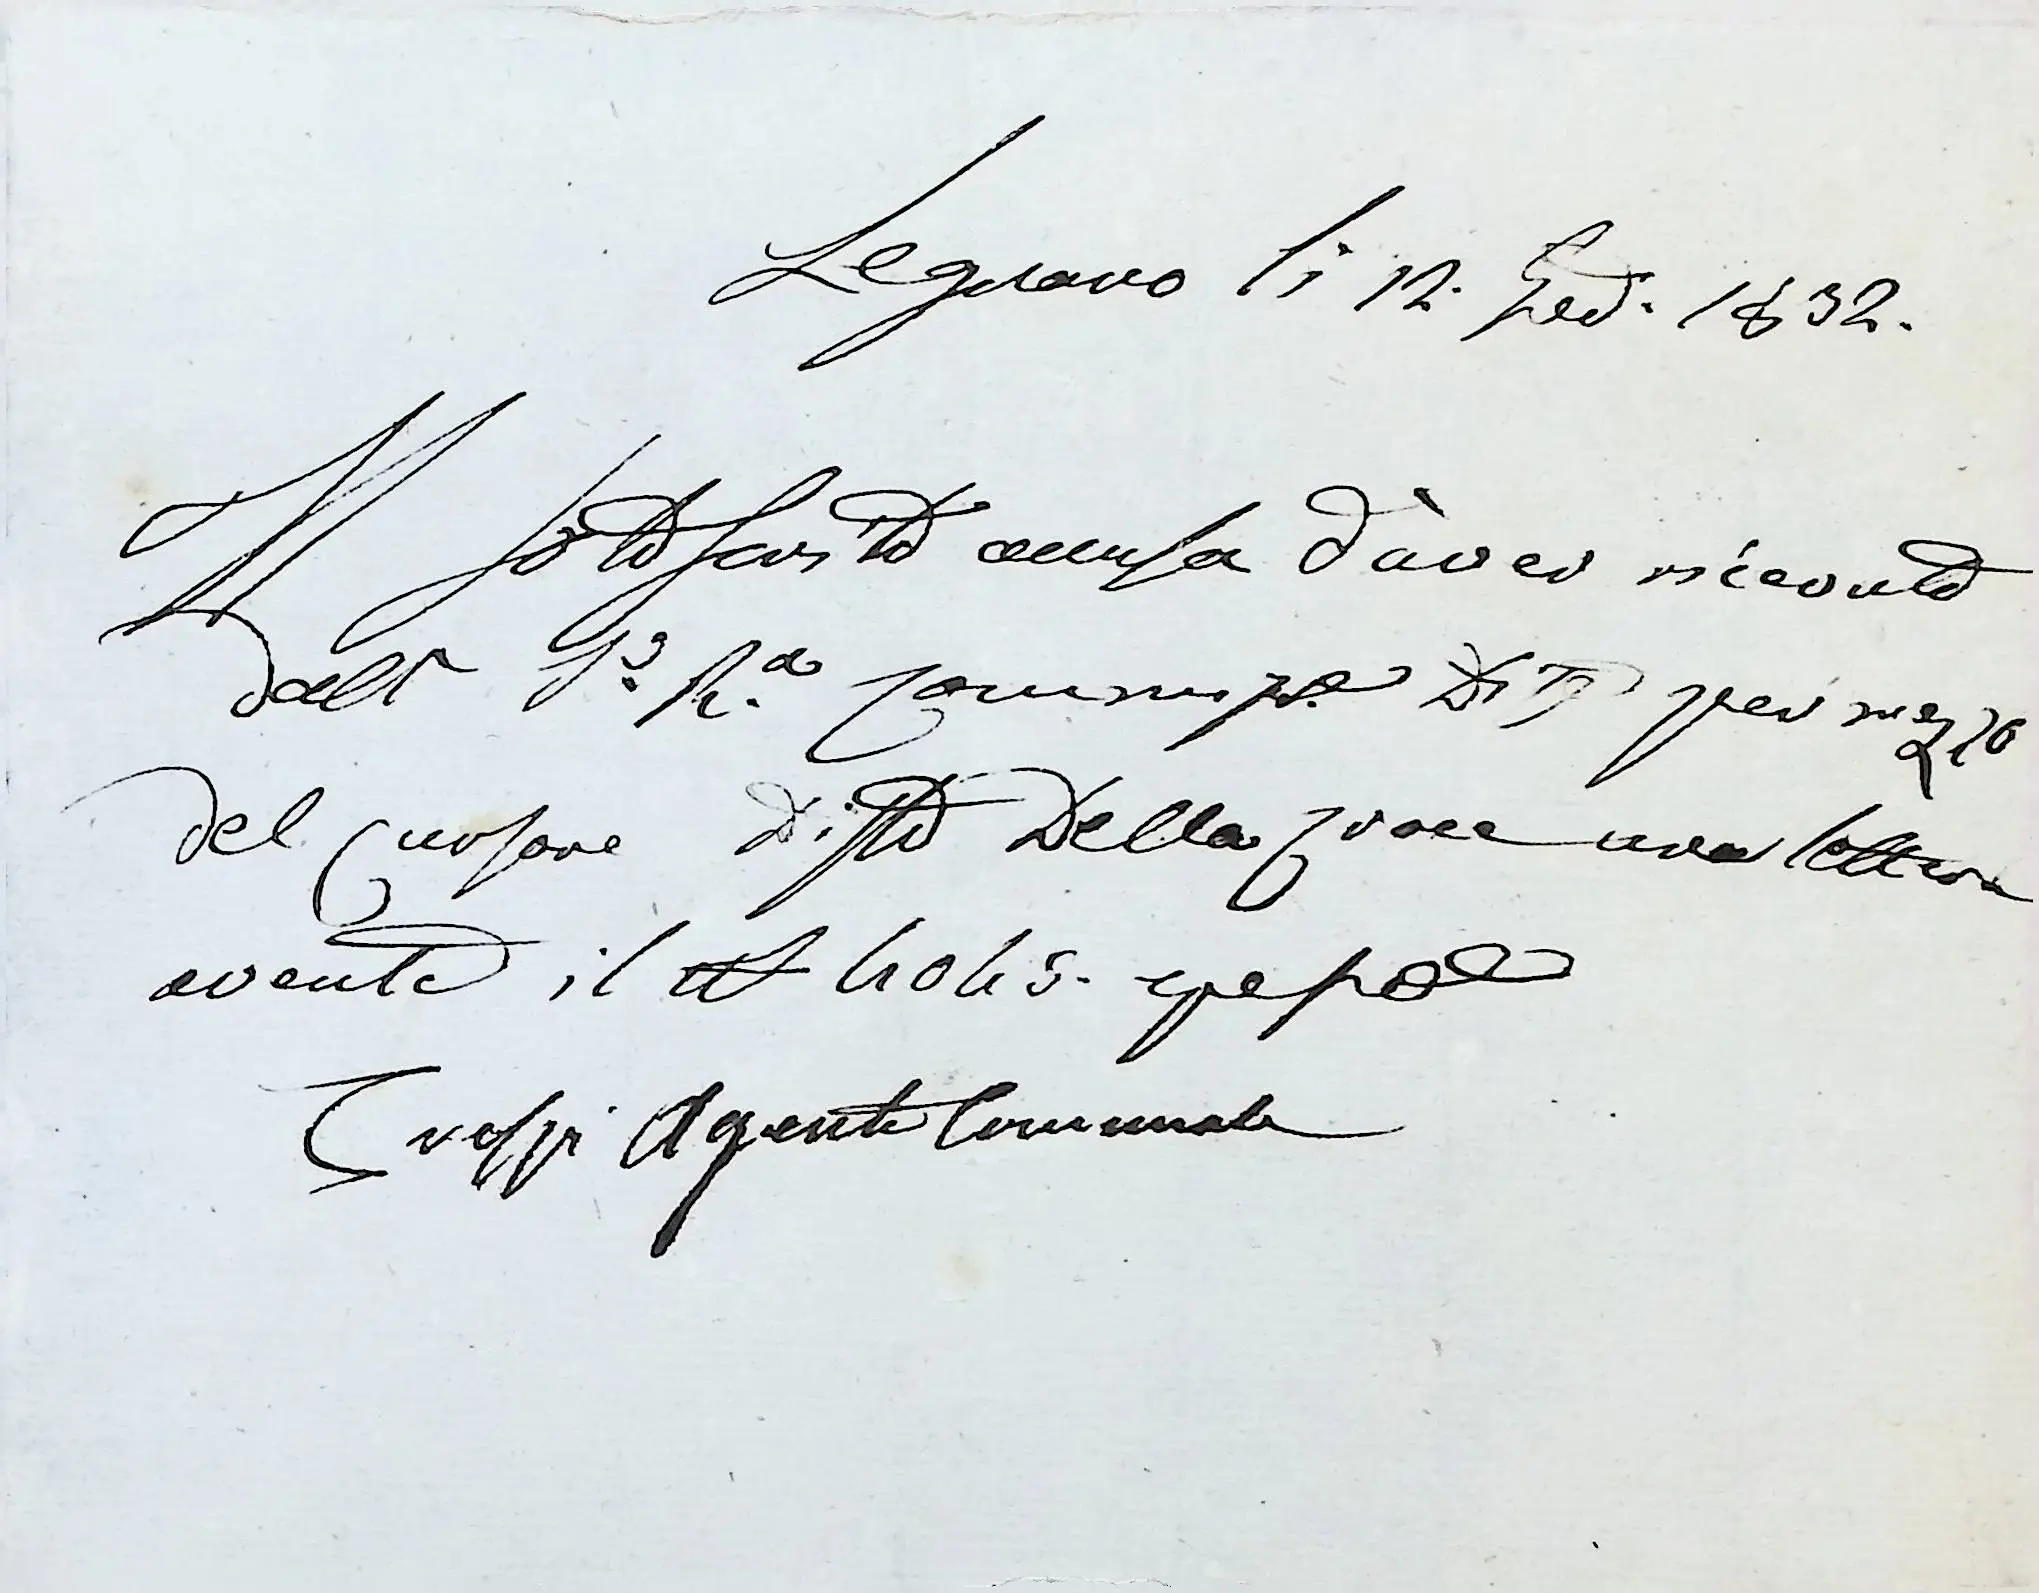 Legnano li 12. Feb. 1832.
Il sottoscritto accusa d'aver ricevuto
dall' I. R.a Commis.a Dis.t per mezzo
del Cursore di ditta Della Croce una lettera
avente il N 4045.
Crespi Agente Comunale